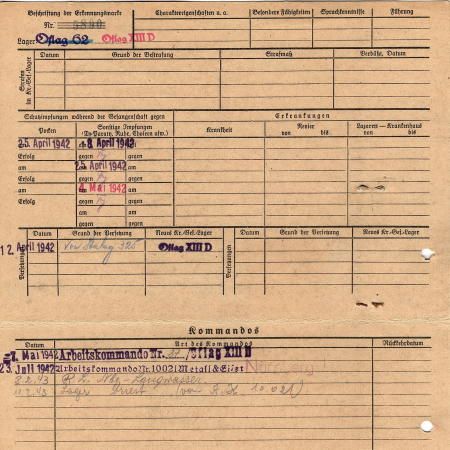 Beschriftung der Erkennungsmarke
Nr. 5880
Lager: Oflag 62 Oflag XIII D
Charaktereigenschaften u. a.
Besondere Fähigkeiten
Sprachkenntnisse
Führung
Strafen in Kr.-Gef.-Lager
Datum
Grund der Bestrafung
Strafmaß
Verbüßt, Datum
Schutzimpfungen während der Gefangenschaft gegen
Erkrankungen
Pocken
Sonstige Impfungen
(Ty-Paraty, Ruhr, Cholera usw.)
Krankheit
Revier
von bis
Lazarett — Krankenhaus
von bis
25. April 1942 am 8. April 1942
Erfolg gegen gegen
am 25. April 1942
Erfolg gegen gegen
am 4. Mai 1942
Erfolg gegen gegen
am am
gegen gegen
Versetzungen
Datum
Grund der Versetzung
Neues Kr.-Gef.-Lager
Versetzungen
Datum
Grund der Versetzung
Neues Kr.-Gef.-Lager
12. April 1942 von Stalag 325 Oflag XIII D
Kommandos
Datum
Art des Kommandos
Rückkehrdatum
Mai 1942 Arbeitskommando Nr. /Oflag XIII D
23. Juli 1942 Arbeitskommando Nr. 10021 Metall & Eisen Nürnberg
8.2.43 Nbg. Langwasser
11.2.43 Lager (von 10 021)